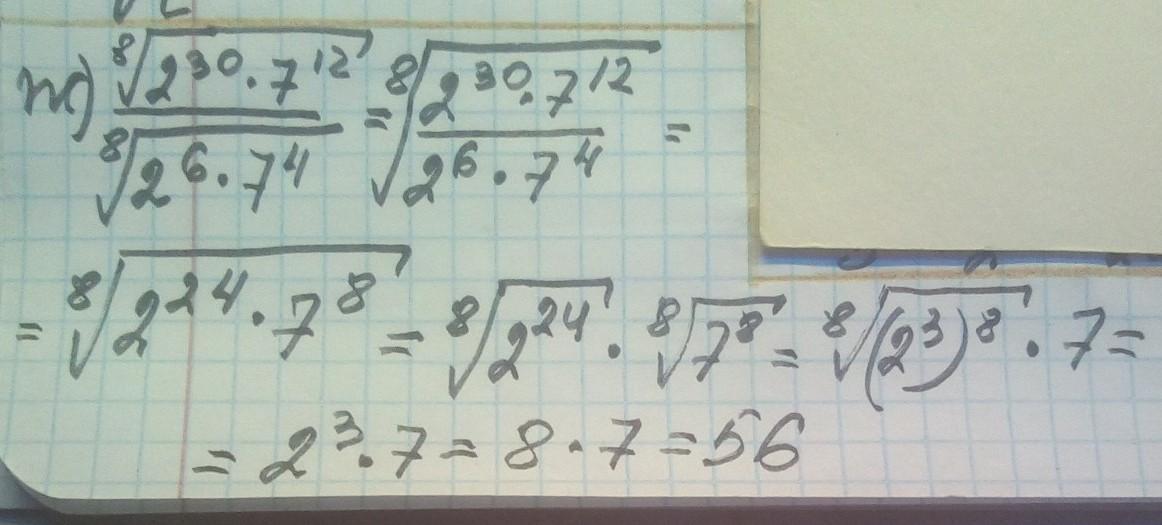 ж) ⁸√(2³⁰·7¹²) / ⁸√(2⁶·7⁴) = ⁸√((2³⁰·7¹²)/(2⁶·7⁴)) =
= ⁸√(2²⁴·7⁸) = ⁸√(2²⁴) · ⁸√(7⁸) = ⁸√((2³)⁸) · 7 =
= 2³·7 = 8·7 = 56